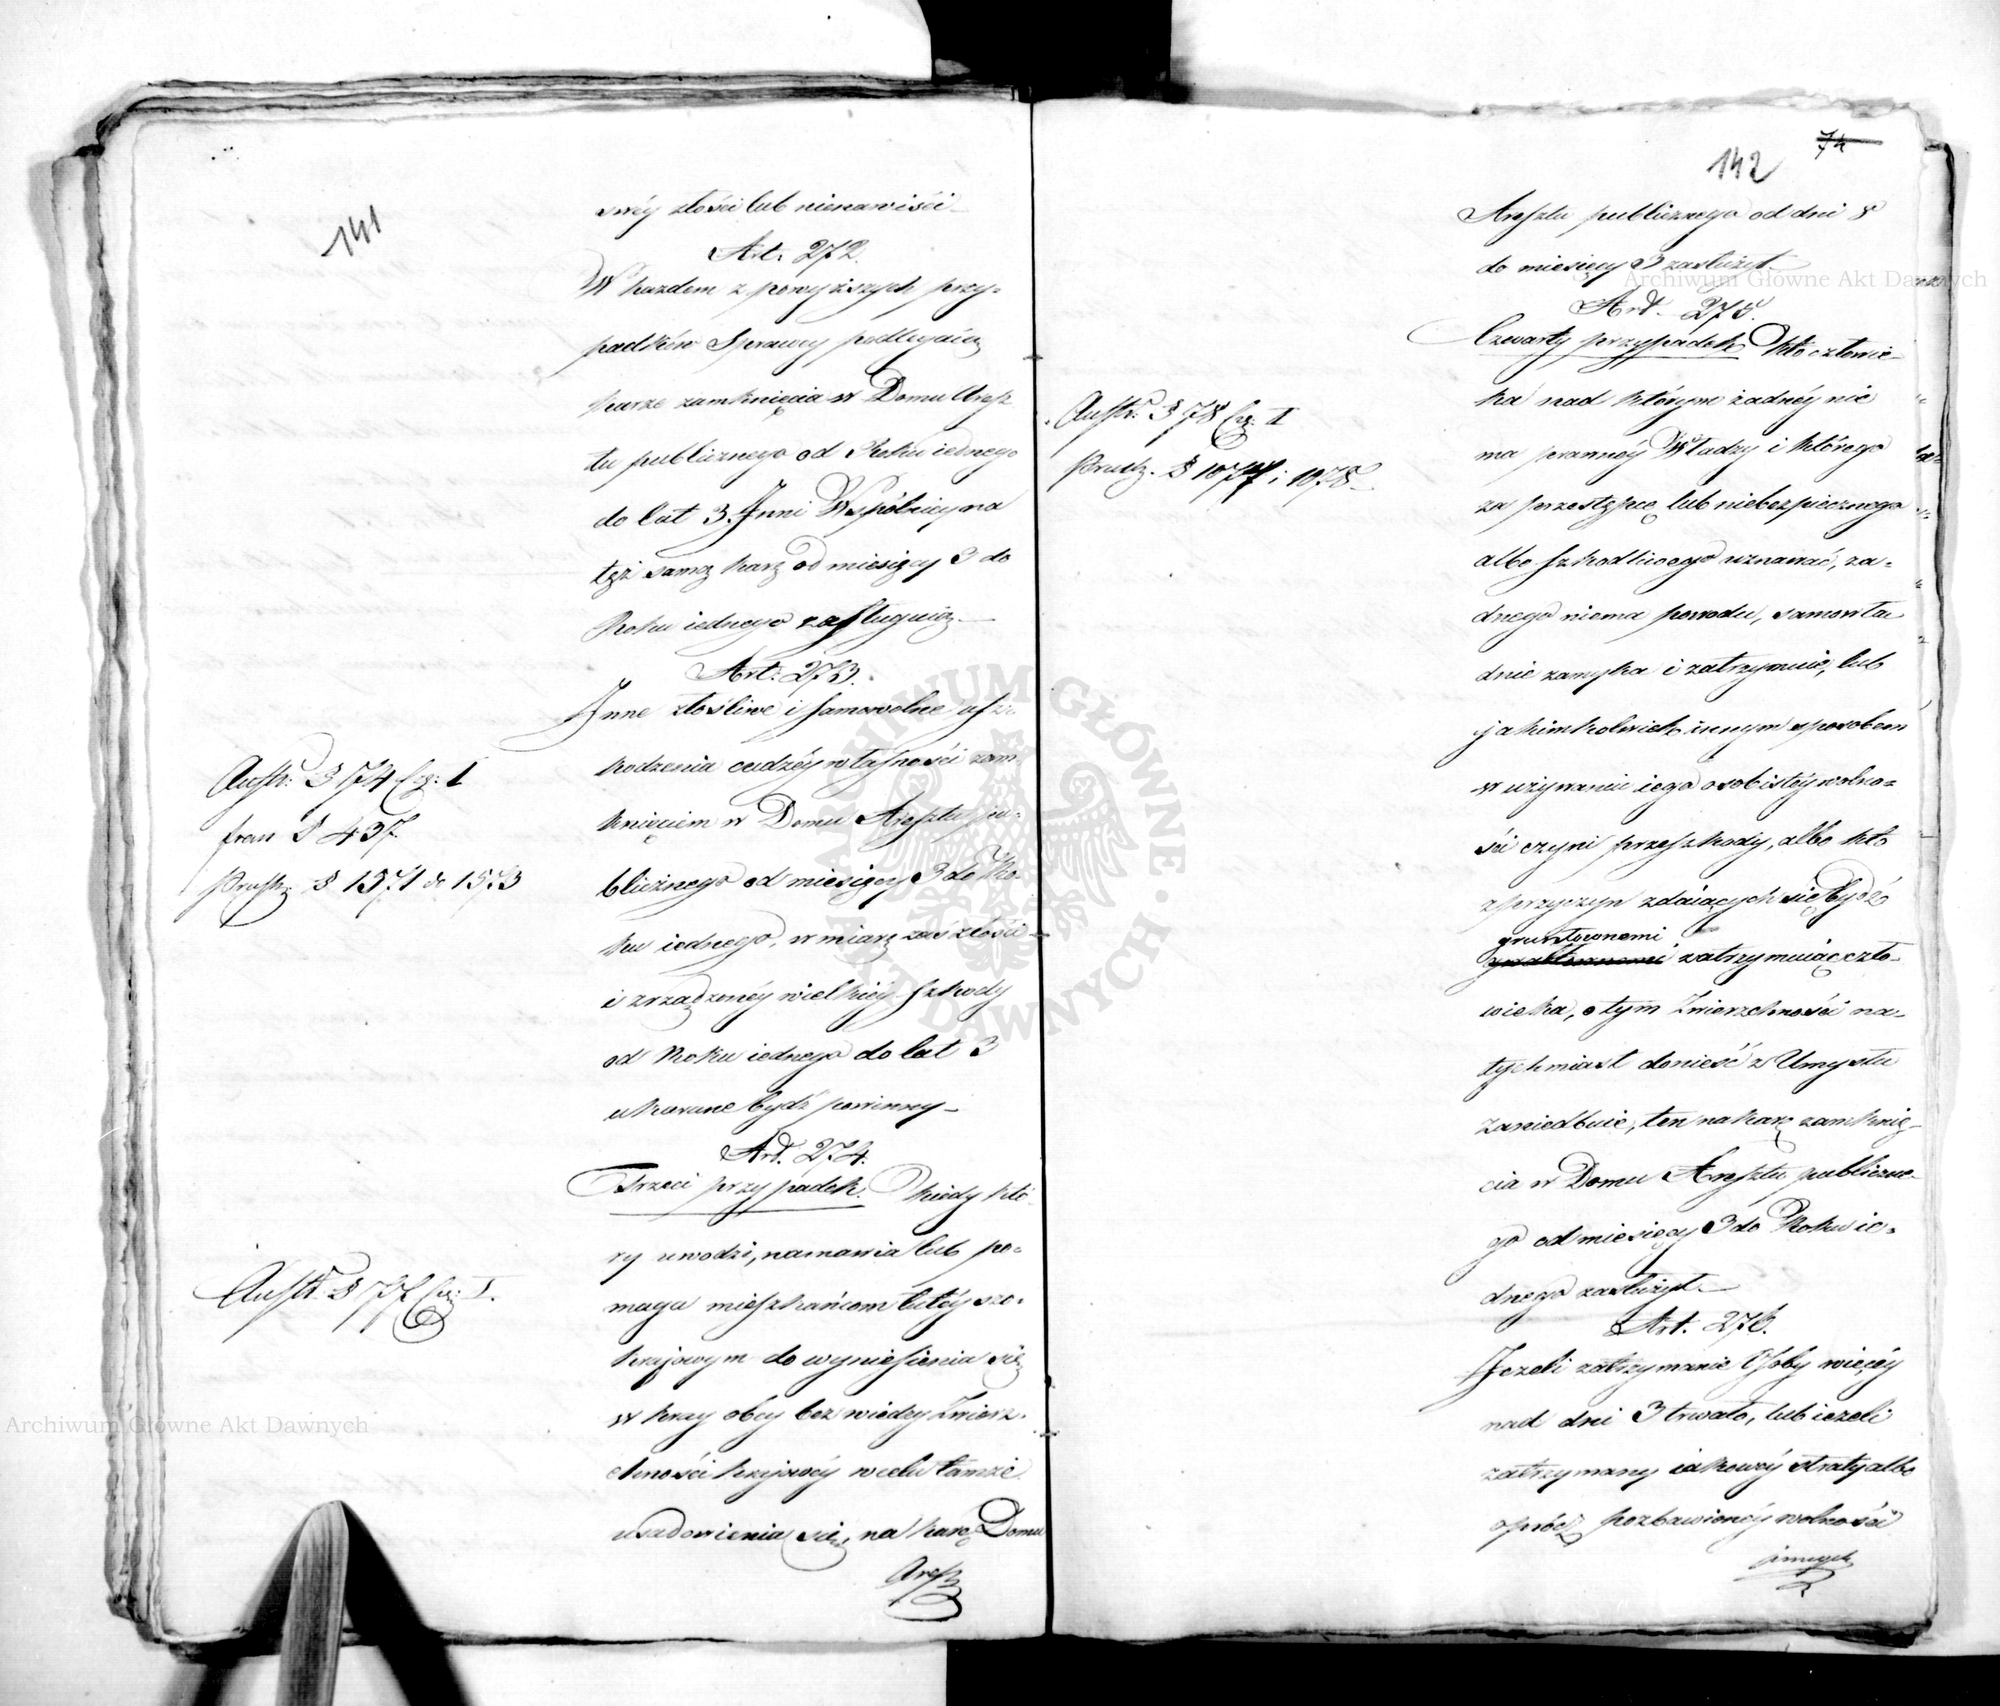 141
swéy złości lub nienawiści
Art. 272.
W każdem z powyższych przy-
padków Sprawcy podlegaią
karze zamknięcia w Domu Aresz
tu publicznego od Roku iednego
do lat 3. Inni Wspólnicy na
tęż samą karę od miesięcy 3 do
Roku iednego zasługuią.
Art. 273.
Inne złośliwe i samowolne usz-
kodzenia cudzéy własności zam
knięciem w Domu Aresztu pu-
blicznego od miesięcy 3 do Ro
ku iednego, w miarę zaś złości
i zrządzonéy wielkiéy szkody
od Roku iednego do lat 3
ukarane bydź powinny
Art. 274.
Trzeci przypadek. kiedy któ
ry uwodzi, namawia lub po-
maga mieszkańcom tutéyszo-
krajowym do wyniesienia się
w kray obcy bez wiedzy Zwierz-
chności krajowéy w celu tamże
usadowienia się, na karę Domu
Aresz
Austr: § 74 Cz: I
fran § 437.
Prusk. § 1571 do 1573
Austr. § 77 Cz: I.
74
142
Aresztu publicznego od dni 8
do miesięcy 3 zasłużył.
Art. 275.
Czwarty przypadek. Kto człowie-
ka nad którym żadnéy nie
ma prawnéy Władzy i którego
za przestępcę lub niebezpiecznego
albo szkodliwego uznawać, ża-
dnego niema powodu, samowła
dnie zamyka i zatrzymuie, lub
jakimkolwiek innym sposobem
w używaniu iego osobistéy wolno-
ści czyni przeszkody, albo kto
z przyczyn zdaiących się bydź
gruntownemi
zatrzymuiąc czło-
wieka, o tym Zwierzchności na-
tychmiast donieść z Umysłu
zaniedbuie, ten na karę zamknię-
cia w Domu Aresztu publiczne-
go od miesięcy 3 do Roku ie-
dnego zasłużył.
Art. 276.
Jeżeli zatrzymanie Osoby więcéy
nad dni 3 trwało, lub ieżeli
zatrzymany iakowéy straty albo
oprócz pozbawionéy wolności
innych
Austr: § 78 Cz: I
Prusk. § 1077 i 1078
Archiwum Główne Akt Dawnych
Archiwum Główne Akt Dawnych
ARCHIWUM GŁÓWNE AKT DAWNYCH